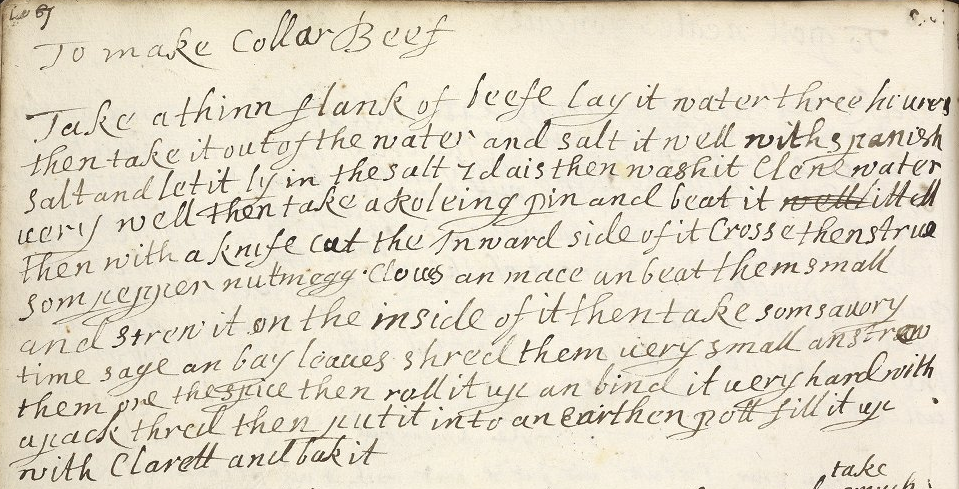 67
To make Collar Beef
Take a thinn flank of beefe lay it water three houres
then take it out of the water and salt it well with spanish
salt and let it ly in the salt 7 dais then wash it Clene water
uery well then take a Roleing pin and beat it well ittell
then with a knife cut the Inward side of it Crosse then strue
som pepper nutmegg Cloues an mace an beat them small
and strew it on the inside of it then take som savory
time sage an bay leaues shred them uery small an strew
them one the spice then roll it up an bind it uery hard with
a pack thred then put it into an earthen pott fill it up
with Clarett and bak it
take